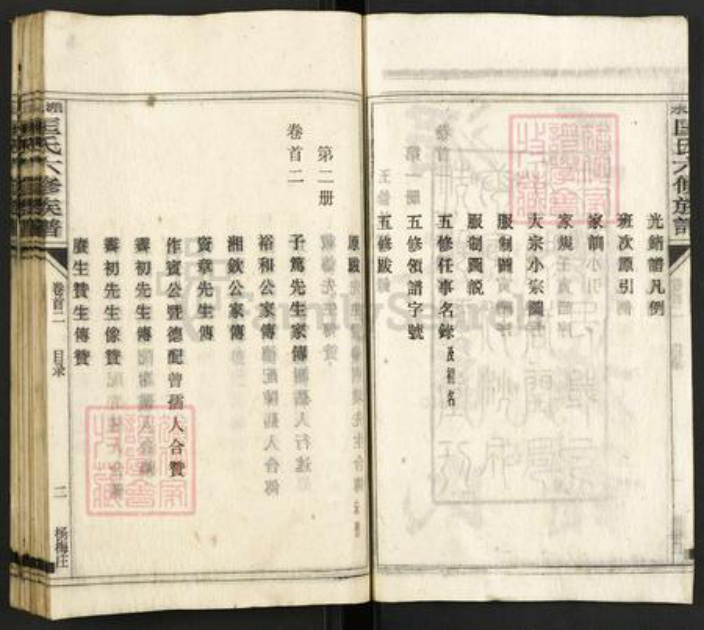 匡氏六修族譜
光緒譜凡例
班次源引
家訓
家規
大宗小宗圖
服制圖
服制圖說
五修任事名錄及捐名
五修領譜字號
五修跋
原跋
第二册
卷首二
子篤先生家傳
裕和公家傳
湘欽公家傳
賓章先生傳
作賓公暨德配曾孺人合贊
壽初先生傳
壽初先生像贊
廣生贊生傳贊
匡氏六修族譜
卷首二
目录
二
杨梅庄
FamilySearch